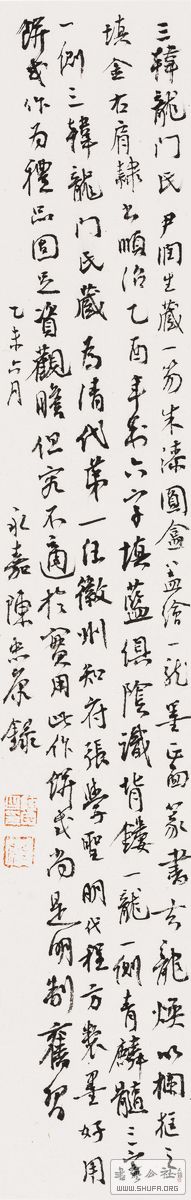 三韓龍门氏尹润生藏一笏朱漆圓盒盖绘一龙墨正面篆書玄龍煙以欄框之
填金右肩隸书順治乙酉年製六字填藍俱陰識背鏤一龍一側青麟髓三字
一側三韓龍门氏藏为清代第一任徽州知府張學聖明代程方製墨好用
餅式作为禮品固足資觀瞻但究不適於實用此作餅式尚是明制舊習
乙未六月
永嘉陳忠康錄
書法公社
www.SHUFA.ORG